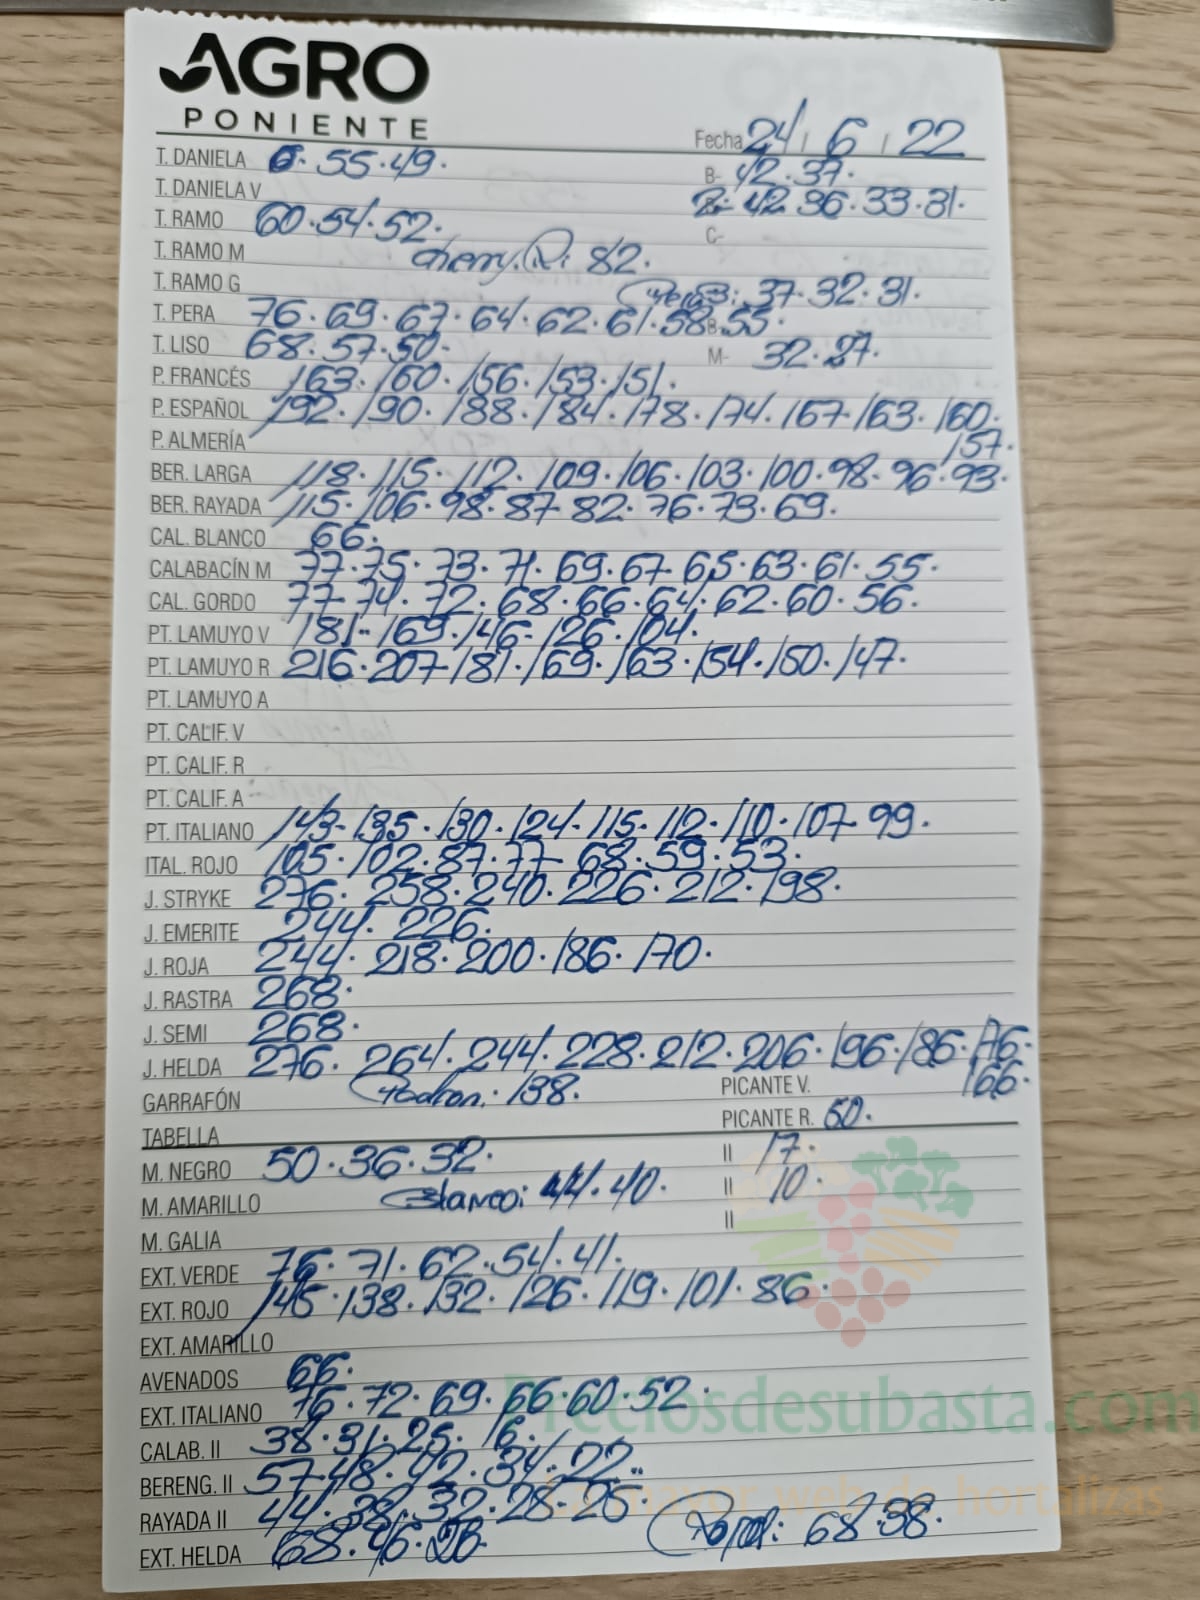 AGRO
PONIENTE
Fecha 24 / 6 / 22
T. DANIELA 6· 55· 49·
B- 42· 37·
T. DANELA V
42· 36· 33· 31·
T. RAMO 60· 54· 52·
C-
T. RAMO M Cherry. R: 82·
T. RAMO G
37· 32· 31·
T. PERA 76· 69· 67· 64· 62· 61· 58· B- 55·
T. LISO 68· 57· 50·
M- 32· 27·
P. FRANCÉS 163· 160· 156· 153· 151·
P. ESPAÑOL 192· 190· 188· 184· 178· 174· 167· 163· 160·
157·
P. ALMERÍA
BER. LARGA 118· 115· 112· 109· 106· 103· 100· 98· 96· 93·
BER. RAYADA 115· 106· 98· 87· 82· 76· 73· 69·
CAL. BLANCO 66·
CALABACÍN M 77· 75· 73· 71· 69· 67· 65· 63· 61· 55·
CAL. GORDO 77· 74· 72· 68· 66· 64· 62· 60· 56·
PT. LAMUYO V 181· 169· 146· 126· 104·
PT. LAMUYO R 216· 207· 181· 169· 163· 154· 150· 147·
PT. LAMUYO A
PT. CALIF. V
PT. CALIF. R
PT. CALIF. A
PT. ITALIANO 143· 135· 130· 124· 115· 112· 110· 107· 99·
ITAL. ROJO 105· 102· 87· 77· 68· 59· 53·
J. STRYKE 276· 258· 240· 226· 212· 198·
J. EMERITE 244· 226·
J. ROJA 244· 218· 200· 186· 170·
J. RASTRA 268·
J. SEMI 268·
J. HELDA 276· 264· 244· 228· 212· 206· 196· 186· 176·
166·
GARRAFÓN Padron: 138·
PICANTE V.
PICANTE R. 50·
TABELLA
M. NEGRO 50· 36· 32·
II 17·
M. AMARILLO Blanco: 44· 40·
II 10·
II
M. GALIA
EXT. VERDE 76· 71· 62· 54· 41·
EXT. ROJO 145· 138· 132· 126· 119· 101· 86·
EXT. AMARILLO
AVENADOS 66·
EXT. ITALIANO 76· 72· 69· 66· 60· 52·
Preciosdesubasta.com
CALAB. II 38· 31· 25· 16·
BERENG. II 57· 48· 42· 34· 22·
mayor web de hortalizas
RAYADA II 44· 38· 32· 28· 25
EXT. HELDA 68· 46· 26·
68· 38·